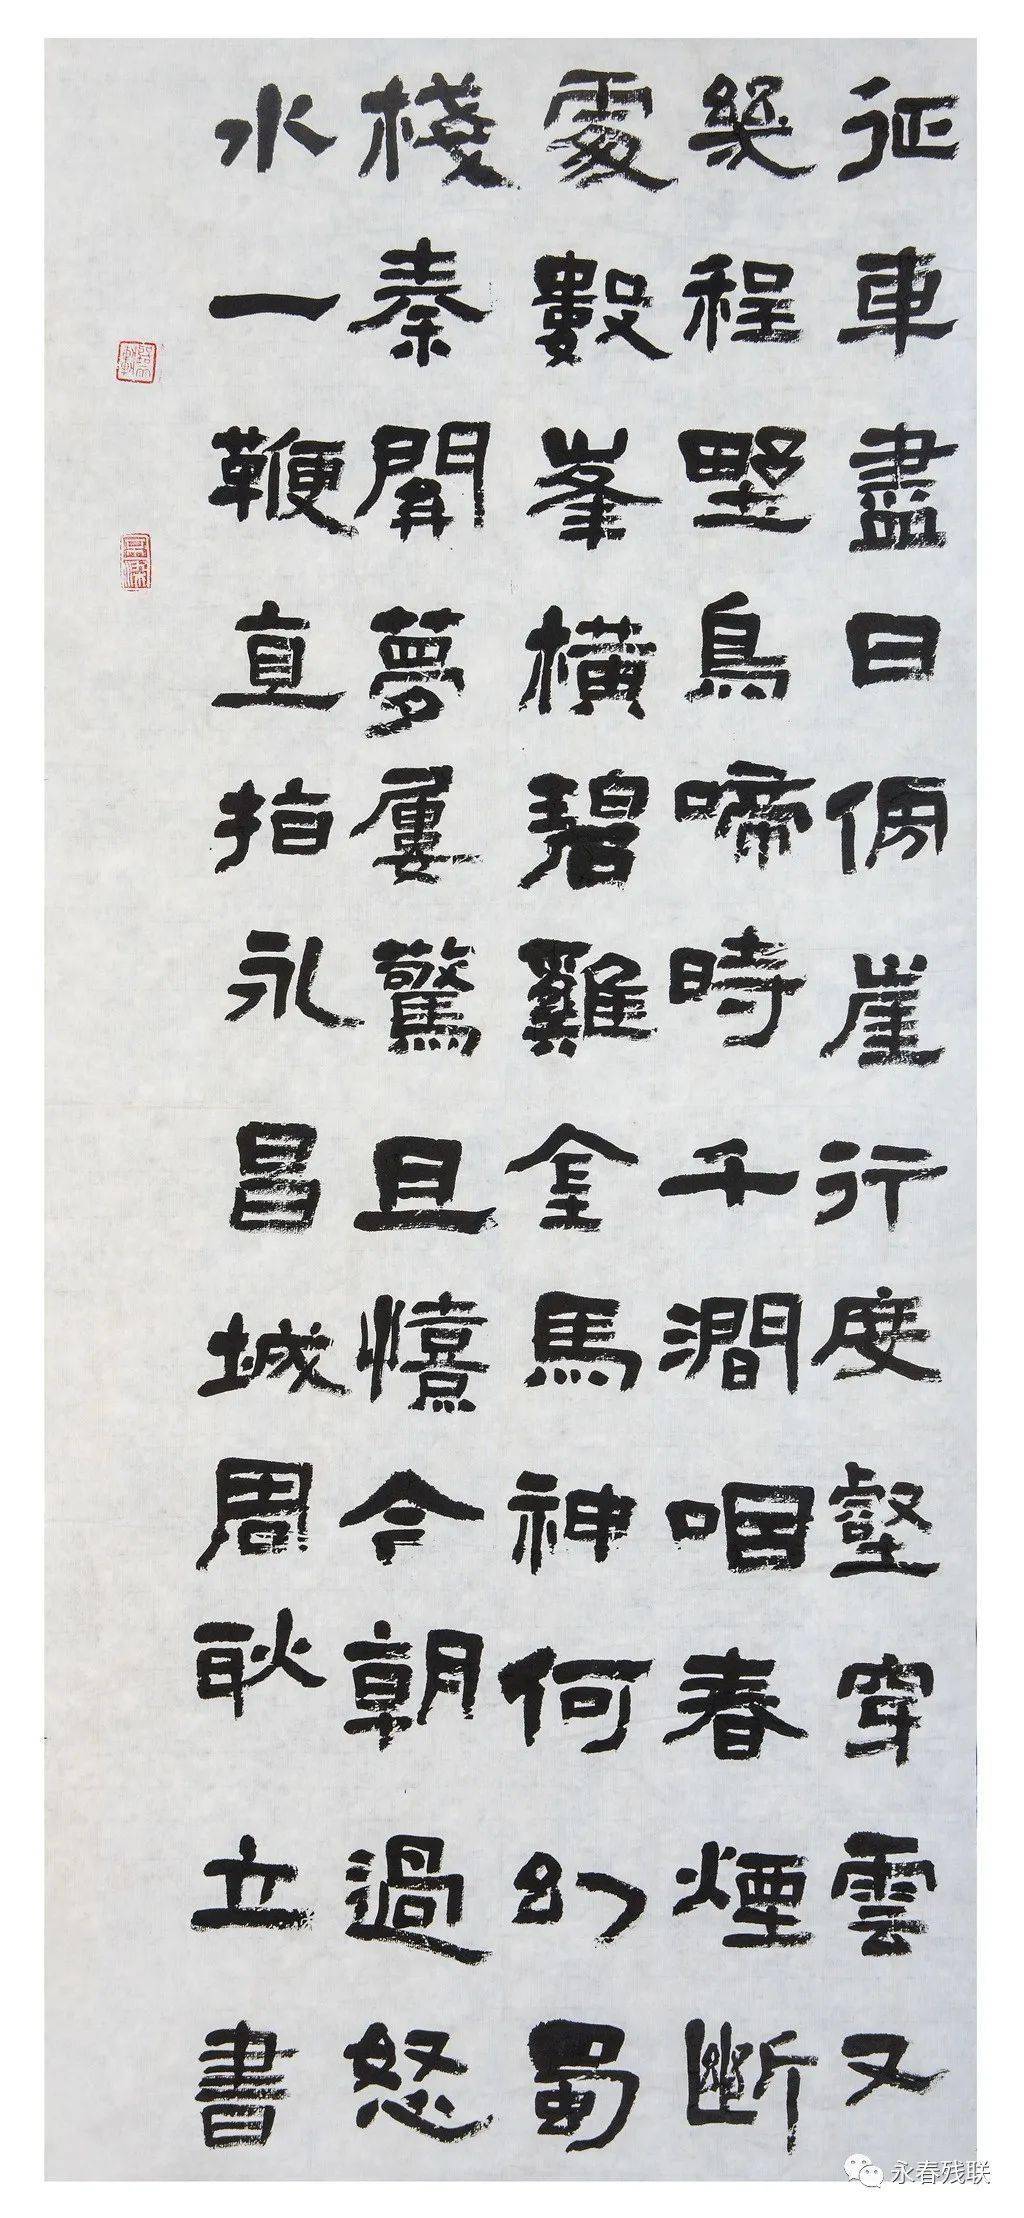 征車盡日傍崖行度壑穿雲又
幾程野鳥啼時千澗咽春煙斷
處數峯橫碧雞金馬神何幻蜀
棧秦關夢屢驚且憘今朝過怒
水一鞭直指永昌城周耿立書
永春残联